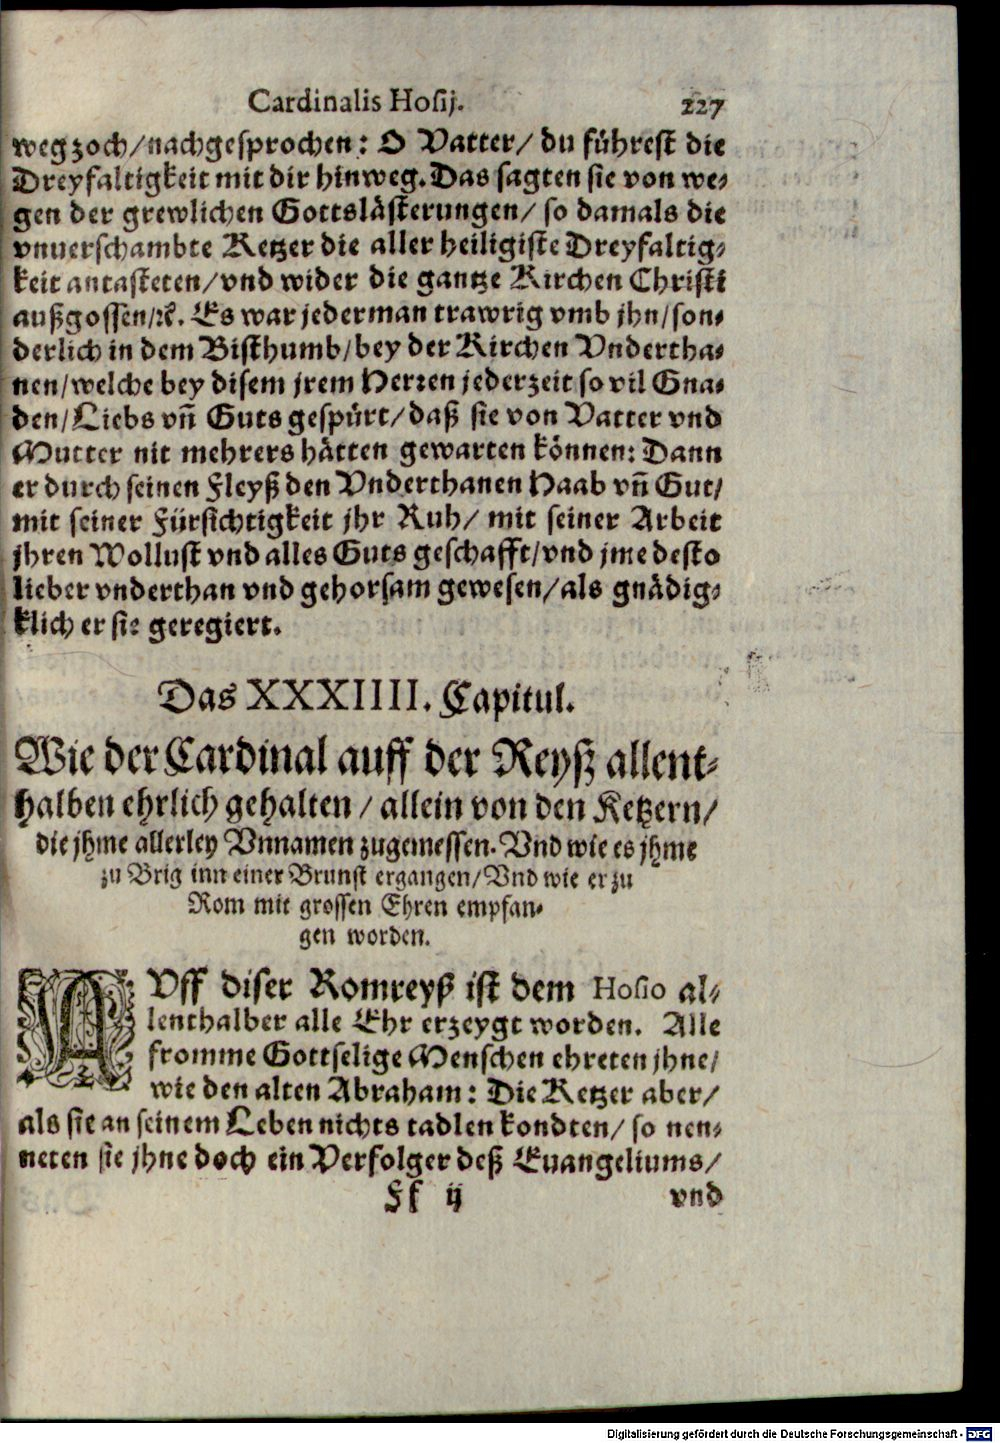 Cardinalis Hosij. 227
weg zoch/nachgesprochen: O Vatter/ du führest die
Dreyfaltigkeit mit dir hinweg. Das sagten sie von we-
gen der grewlichen Gottslästerungen/ so damals die
vnuerschambte Ketzer die aller heiligiste Dreyfaltig-
keit antasteten/vnd wider die gantze Kirchen Christi
außgossen/ꝛc. Es war jederman trawrig vmb jhn/son-
derlich in dem Bisthumb/bey der Kirchen Vndertha-
nen/welche bey disem jrem Herꝛen jederzeit so vil Gna-
den/Liebs vñ Guts gespürt/daß sie von Vatter vnd
Mutter nit mehrers hätten gewarten können: Dann
er durch seinen Fleyß den Vnderthanen Haab vñ Gut/
mit seiner Fürsichtigkeit jhr Ruh/ mit seiner Arbeit
jhren Wollust vnd alles Guts geschafft/vnd jme desto
lieber vnderthan vnd gehorsam gewesen/als gnädig-
klich er sie geregiert.
Das XXXIIII. Capitul.
Wie der Cardinal auff der Reyß allent-
halben ehrlich gehalten/ allein von den Ketzern/
die jhme allerley Vnnamen zugemessen. Vnd wie es jhme
zu Brig inn einer Brunst ergangen/Vnd wie er zu
Rom mit grossen Ehren empfan-
gen worden.
AVff diser Romreyß ist dem Hosio al-
lenthalber alle Ehr erzeygt worden. Alle
fromme Gottselige Menschen ehreten jhne/
wie den alten Abraham: Die Ketzer aber/
als sie an seinem Leben nichts tadlen kondten/ so nen-
neten sie jhne doch ein Verfolger deß Euangeliums/
Ff ij vnd
Digitalisierung gefördert durch die Deutsche Forschungsgemeinschaft - DFG